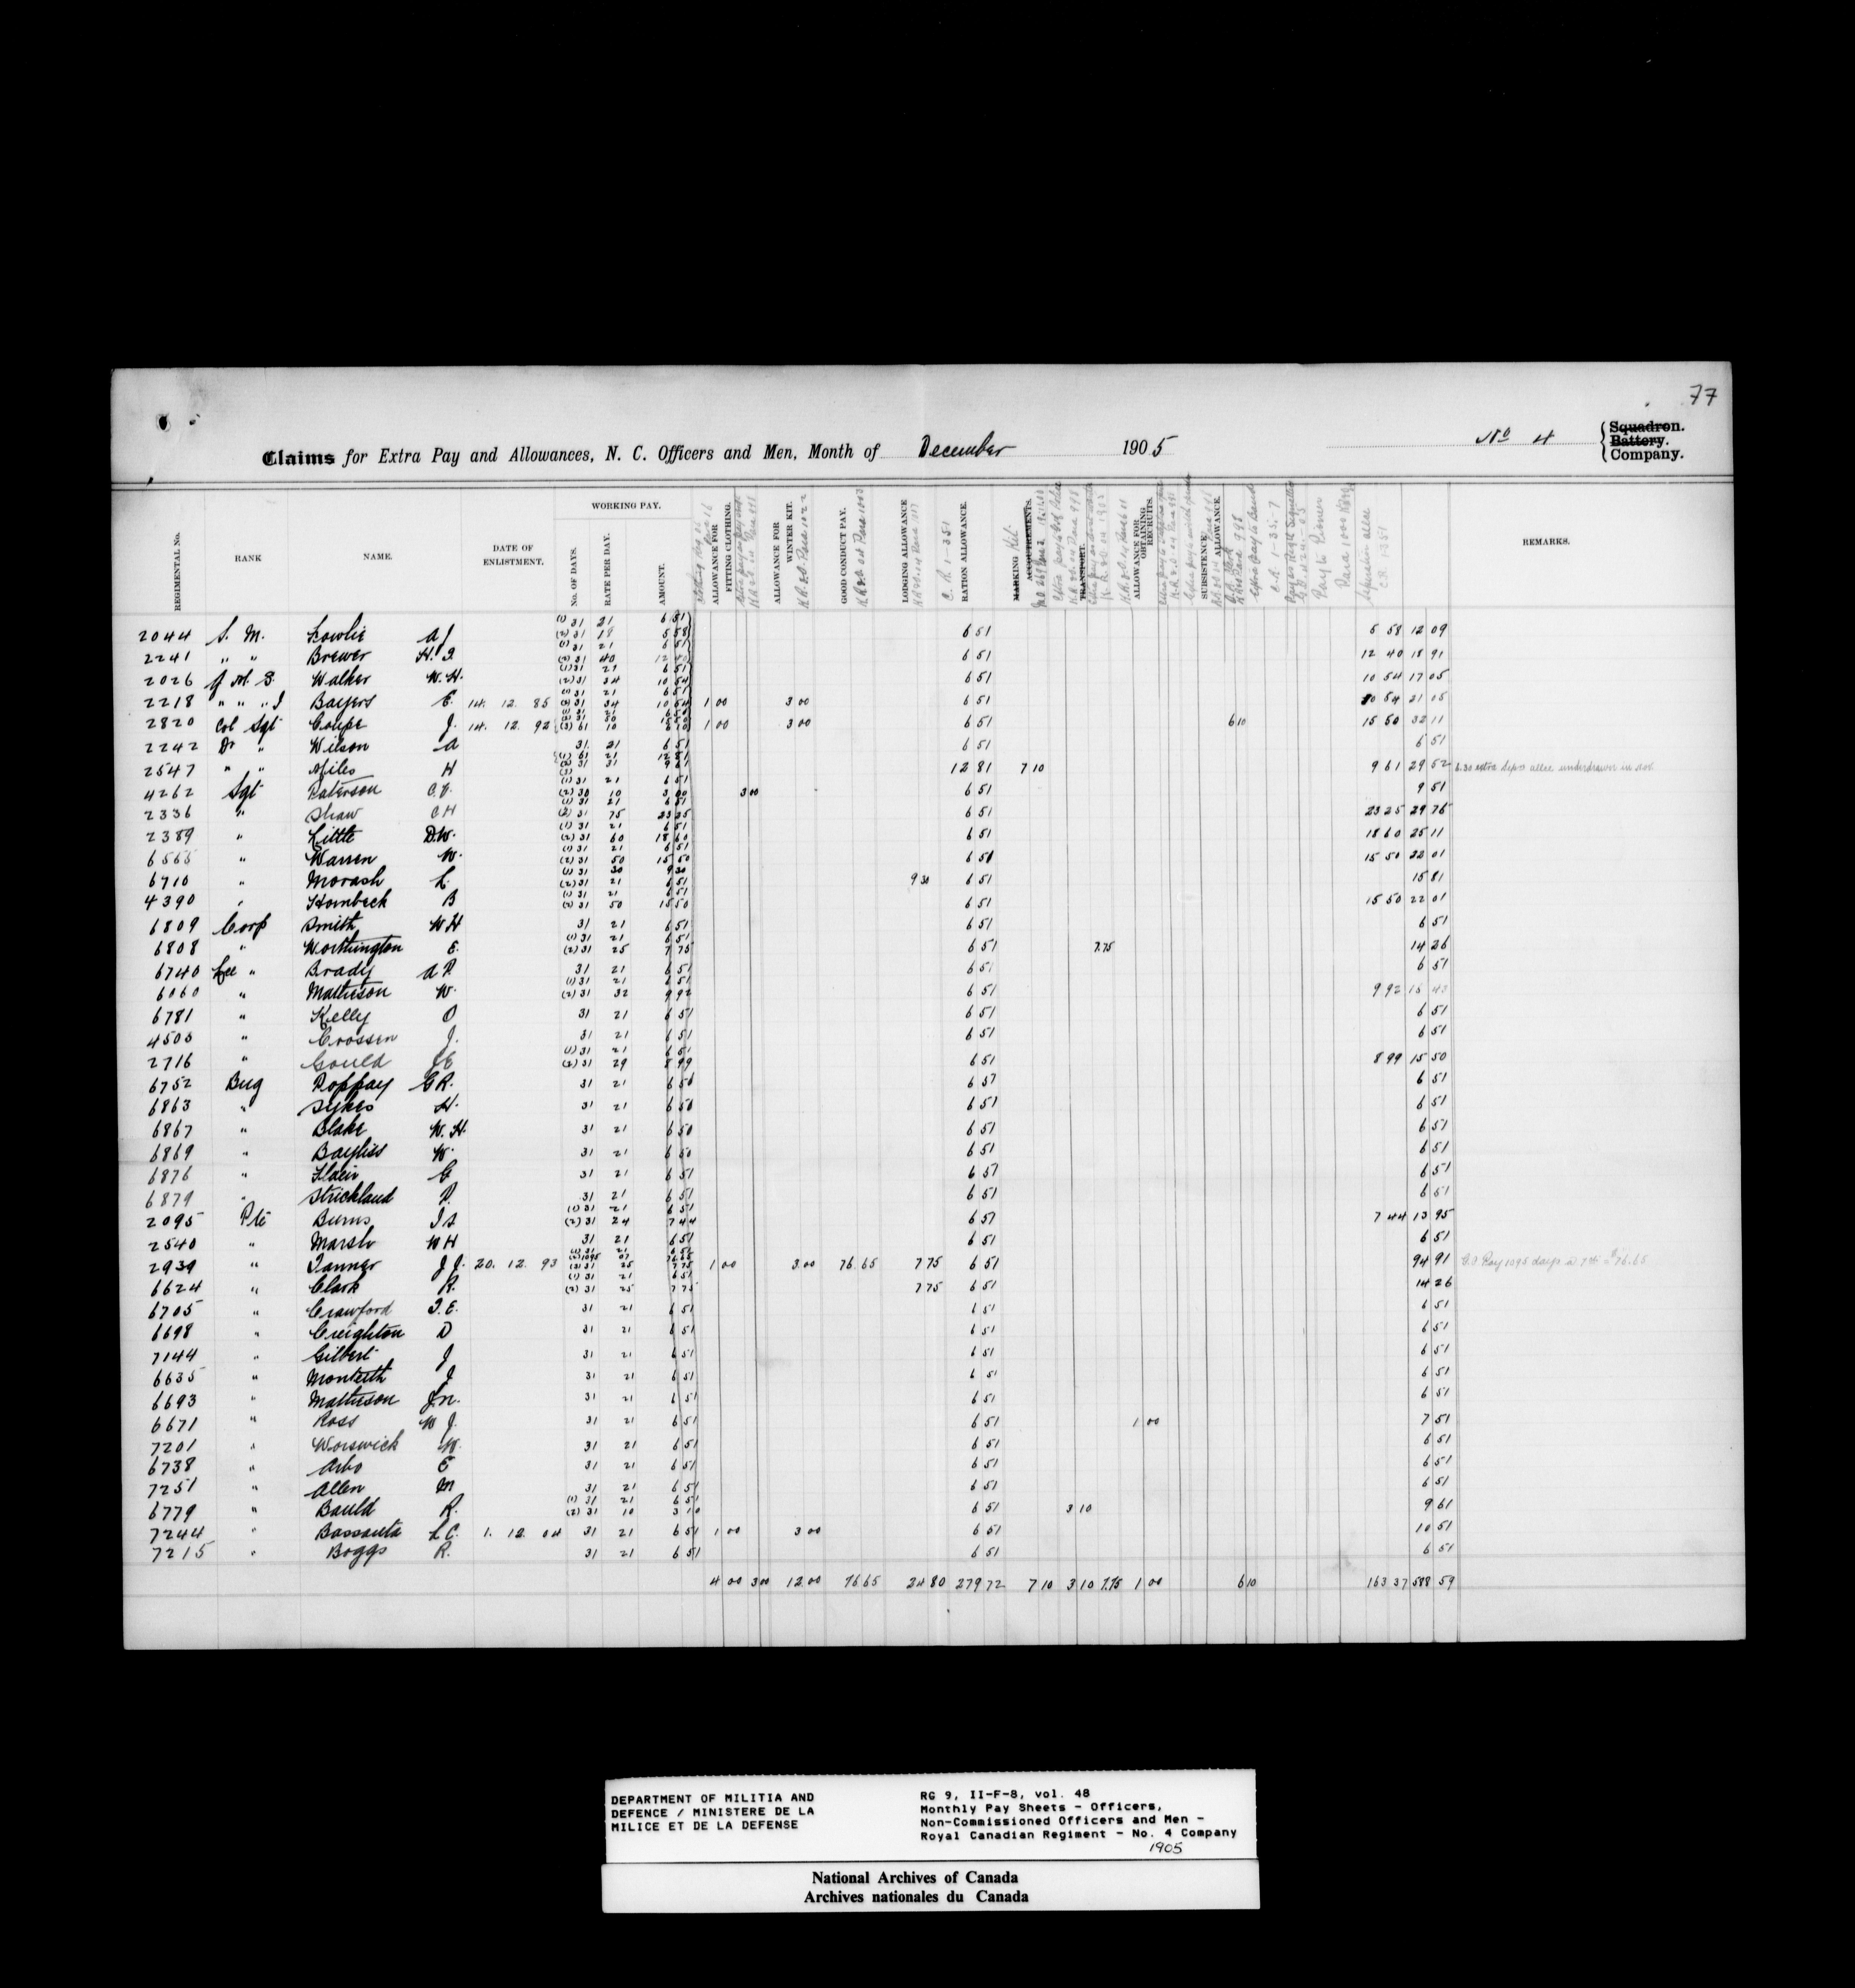 77
Claims for Extra Pay and Allowances, N. C. Officers and Men, Month of December 1905 No 4 Squadron. Battery. Company.
REGIMENTAL No. RANK NAME. DATE OF ENLISTMENT. WORKING PAY. No. OF DAYS. RATE PER DAY. AMOUNT. ALLOWANCE FOR FITTING CLOTHING. ALLOWANCE FOR WINTER KIT. GOOD CONDUCT PAY. LODGING ALLOWANCE C. R. 1-351 RATION ALLOWANCE. MARKING Kit. ACCOUTREMENTS. TRANSPORT. ALLOWANCE FOR OBTAINING RECRUITS. SUBSISTENCE ALLOWANCE. REMARKS.
2044 S. M. A J (1) 31 21 6 51 (2) 31 18 5 58 6 51 5 58 12 09
2241 " " Brewer (1) 31 21 6 51 (2) 31 40 12 40 6 51 12 40 18 91
2026 Q M S. Walker W. H. (1) 31 21 6 51 (2) 31 34 10 54 6 51 10 54 17 05
2218 " " " I Bayers E. 14. 12. 85 (1) 31 21 6 51 (2) 31 34 10 54 1 00 3 00 6 51 10 54 21 05
2820 Col Sgt Coupe J. 14. 12. 92 (1) 31 21 6 51 (2) 31 50 15 50 (3) 61 10 6 10 1 00 3 00 6 51 6 10 15 50 32 11
2242 Dr " Wilson A 31 21 6 51 6 51 6 51
2547 " " Miles H (1) 61 21 12 81 (2) 31 31 9 61 (3) 12 81 7 10 9 61 29 52 6.30 extra underdrawn in
4262 Sgt Paterson C. J. (1) 31 21 6 51 (2) 30 10 3 00 3 00 6 51 9 51
2336 " Shaw C H (1) 31 21 6 51 (2) 31 75 23 25 6 51 23 25 29 76
2389 " Little D.W. (1) 31 21 6 51 (2) 31 60 18 60 6 51 18 60 25 11
6565 " Warren W. (1) 31 21 6 51 (2) 31 50 15 50 6 51 15 50 22 01
6710 " Morash L. (1) 31 30 9 30 (2) 31 21 6 51 9 30 6 51 15 81
4390 " Hornbeck B (1) 31 21 6 51 (2) 31 50 15 50 6 51 15 50 22 01
6809 Corp Smith W H 31 21 6 51 6 51 6 51
6808 " Worthington E. (1) 31 21 6 51 (2) 31 25 7 75 6 51 7.75 14 26
6740 Lce " Brady A P. 31 21 6 51 6 51 6 51
6060 " Matheson W. (1) 31 21 6 51 (2) 31 32 9 92 6 51 9 92 16 43
6781 " Kelly O 31 21 6 51 6 51 6 51
4505 " Crossen J. 31 21 6 51 6 51 6 51
2716 " Gould (1) 31 21 6 51 (2) 31 29 8 99 6 51 8 99 15 50
6752 Bug Poppay G R. 31 21 6 51 6 51 6 51
6863 " Sykes H. 31 21 6 51 6 51 6 51
6867 " Blake W. H. 31 21 6 51 6 51 6 51
6869 " Bayliss W. 31 21 6 51 6 51 6 51
6876 " G 31 21 6 51 6 51 6 51
6879 " Strickland P. 31 21 6 51 6 51 6 51
2095 Pte Burns (1) 31 21 6 51 (2) 31 24 7 44 6 51 7 44 13 95
2540 " Marsh W H 31 21 6 51 6 51 6 51
2939 " Tanner J J. 20. 12. 93 (1) 31 21 6 51 (2) 1095 07 76 65 (3) 31 25 7 75 1 00 3 00 76 65 7 75 6 51 94 91 G.C. Pay 1095 days @ 7cts = $76.65
6624 " Clark R. (1) 31 21 6 51 (2) 31 25 7 75 7 75 6 51 14 26
6705 " Crawford T. E. 31 21 6 51 6 51 6 51
6698 " Creighton D 31 21 6 51 6 51 6 51
7144 " Gilbert J 31 21 6 51 6 51 6 51
6635 " Monteith J 31 21 6 51 6 51 6 51
6693 " Matheson J. N. 31 21 6 51 6 51 6 51
6671 " Ross W J. 31 21 6 51 6 51 1 00 7 51
7201 " Worswick W. 31 21 6 51 6 51 6 51
6738 " Arbo E 31 21 6 51 6 51 6 51
7251 " Allen M 31 21 6 51 6 51 6 51
6779 " Bauld R. (1) 31 21 6 51 (2) 31 10 3 10 6 51 3 10 9 61
7244 " L C. 1. 12. 04 31 21 6 51 1 00 3 00 6 51 10 51
7215 " Boggs R. 31 21 6 51 6 51 6 51
4 00 3 00 12 00 76 65 24 80 279 72 7 10 3 10 7.75 1 00 6 10 163 37 588 59
DEPARTMENT OF MILITIA AND
DEFENCE / MINISTERE DE LA
MILICE ET DE LA DEFENSE
RG 9, II-F-8, vol. 48
Monthly Pay Sheets - Officers,
Non-Commissioned Officers and Men -
Royal Canadian Regiment - No. 4 Company
1905
National Archives of Canada
Archives nationales du Canada